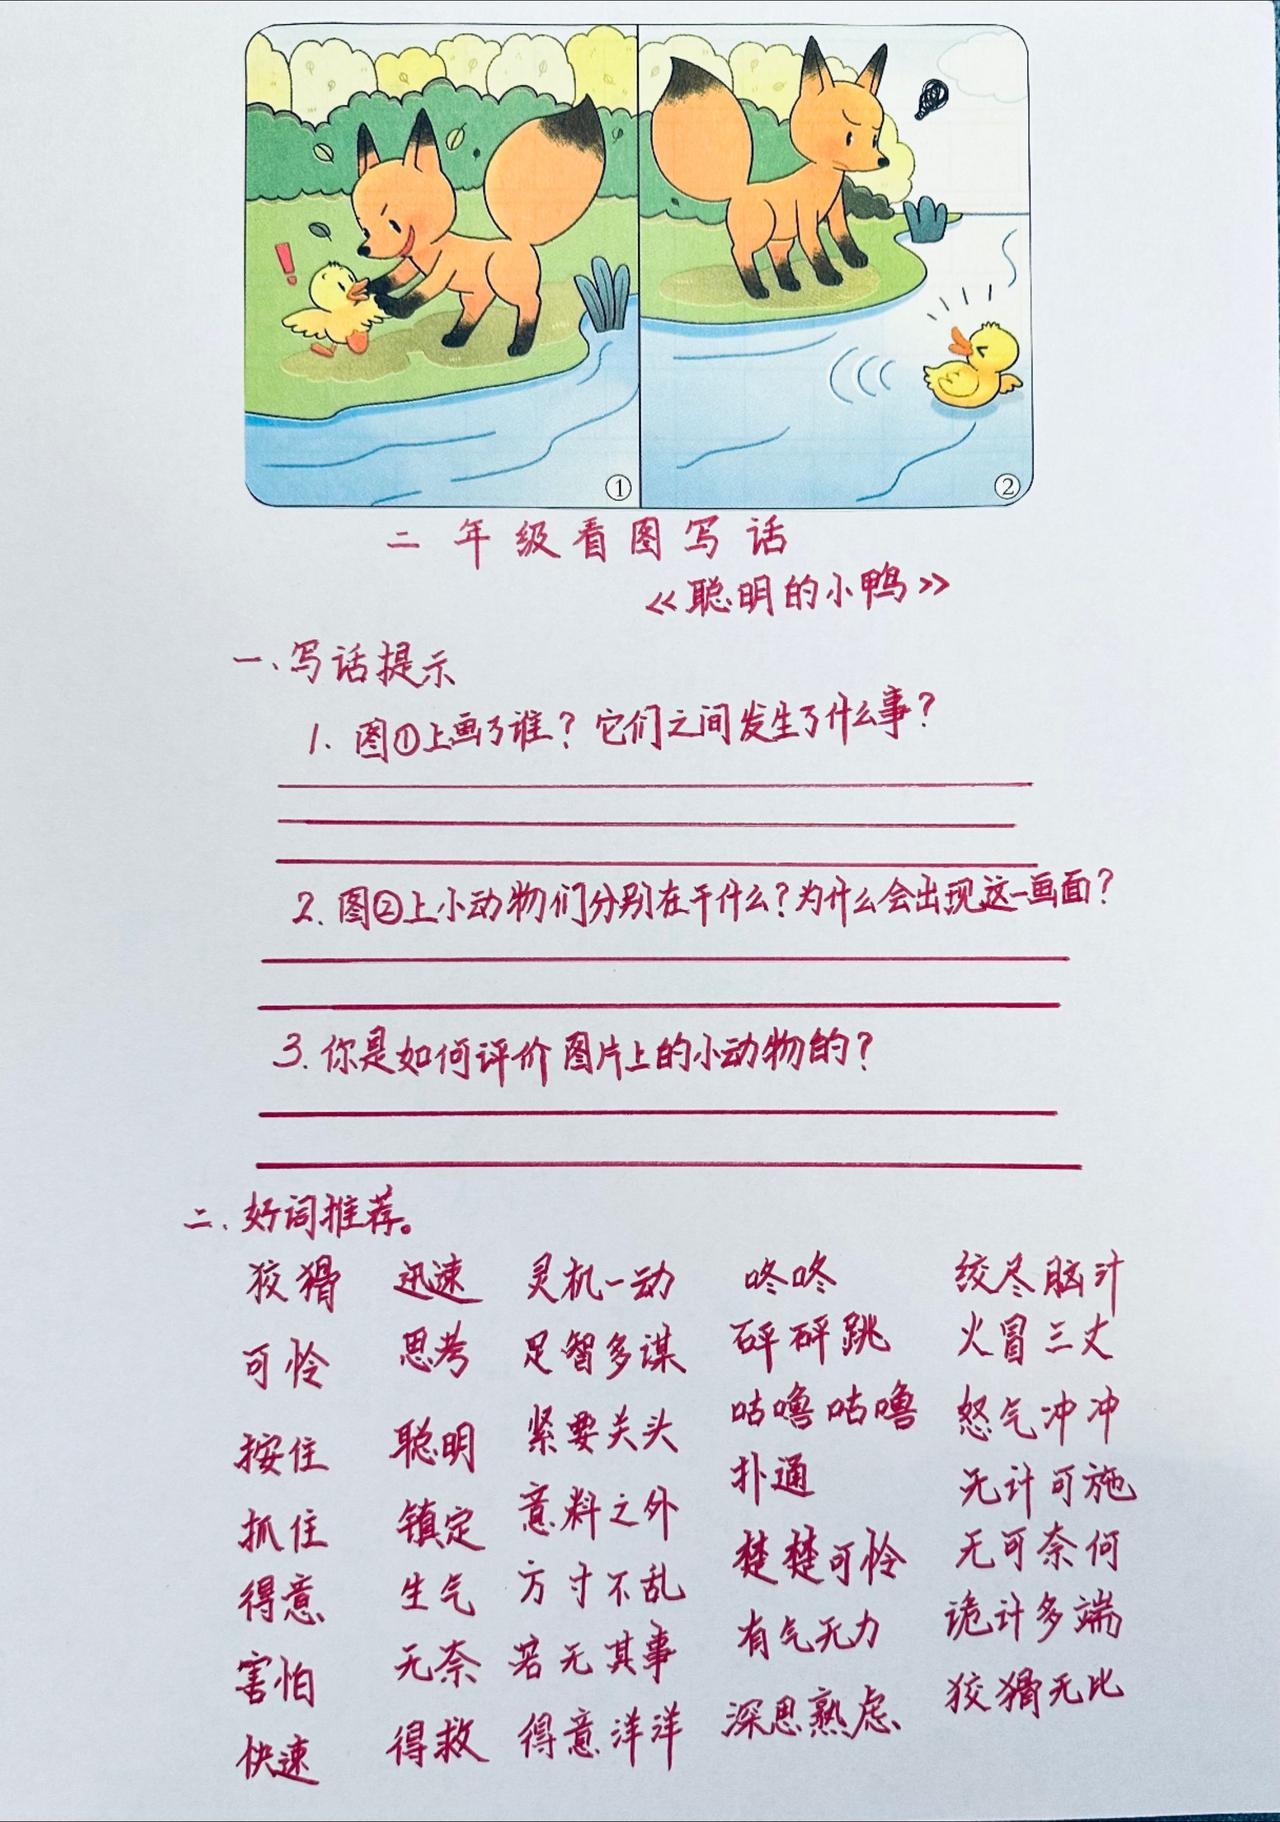 ①
②
二年级看图写话
《聪明的小鸭》
一、写话提示
1. 图①上画了谁？它们之间发生了什么事？
2. 图②上小动物们分别在干什么？为什么会出现这一画面？
3. 你是如何评价图片上的小动物的？
二、好词推荐。
狡猾 迅速 灵机一动 咚咚 绞尽脑汁
可怜 思考 足智多谋 砰砰跳 火冒三丈
按住 聪明 紧要关头 咕噜咕噜 怒气冲冲
抓住 镇定 意料之外 扑通 无计可施
得意 生气 方寸不乱 楚楚可怜 无可奈何
害怕 无奈 若无其事 有气无力 诡计多端
快速 得救 得意洋洋 深思熟虑 狡猾无比